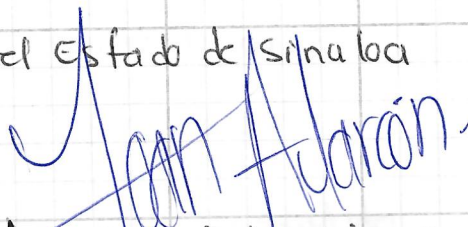 el Estado de Sinaloa
Juan Alarcón.